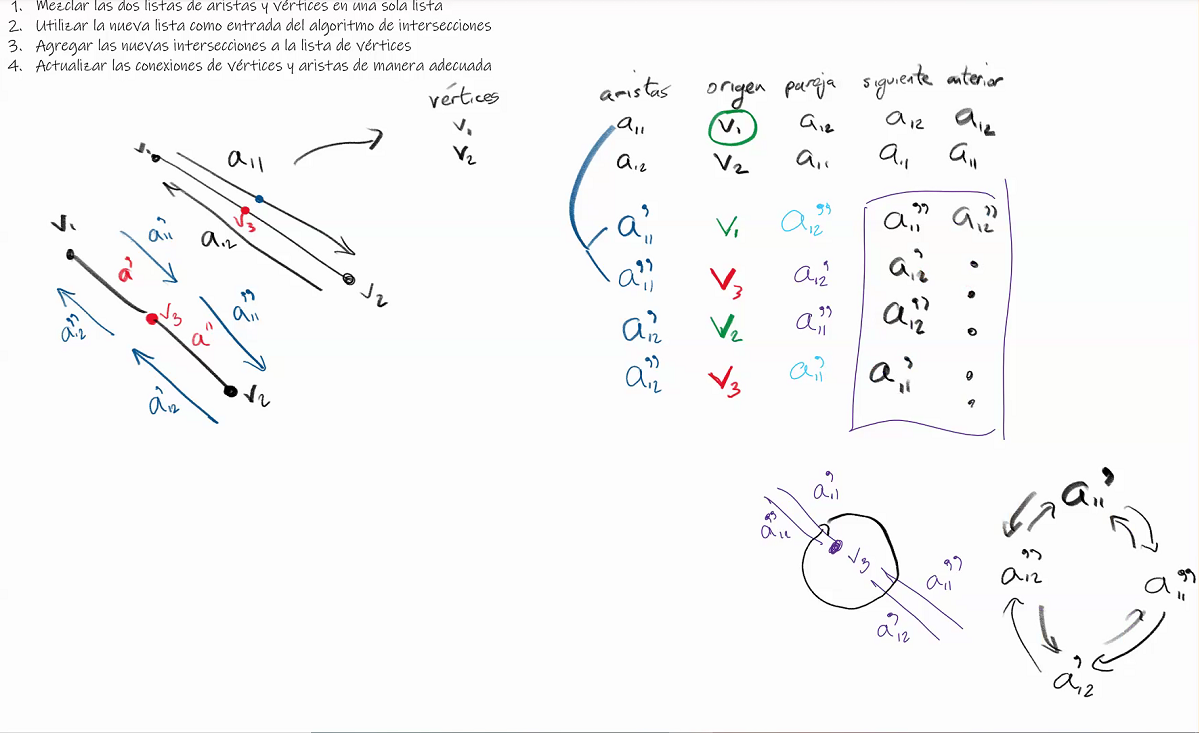 1. Mezclar las dos listas de aristas y vértices en una sola lista
2. Utilizar la nueva lista como entrada del algoritmo de intersecciones
3. Agregar las nuevas intersecciones a la lista de vértices
4. Actualizar las conexiones de vértices y aristas de manera adecuada
vértices
v₁
v₂
aristas origen pareja siguiente anterior
a₁₁ v₁ a₁₂ a₁₂ a₁₂
a₁₂ v₂ a₁₁ a₁₁ a₁₁
a₁₁' v₁ a₁₂'' a₁₁'' a₁₂''
a₁₁'' v₃ a₁₂' a₁₂'
a₁₂' v₂ a₁₁'' a₁₂''
a₁₂'' v₃ a₁₁' a₁₁'
v₁ a₁₁
v₃
a₁₂
v₂
v₁ a₁₁'
a'
v₃ a₁₁''
a₁₂'' a''
v₂
a₁₂'
a₁₁'
a₁₂''
v₃
a₁₁''
a₁₂'
a₁₁'
a₁₂'' a₁₁''
a₁₂'